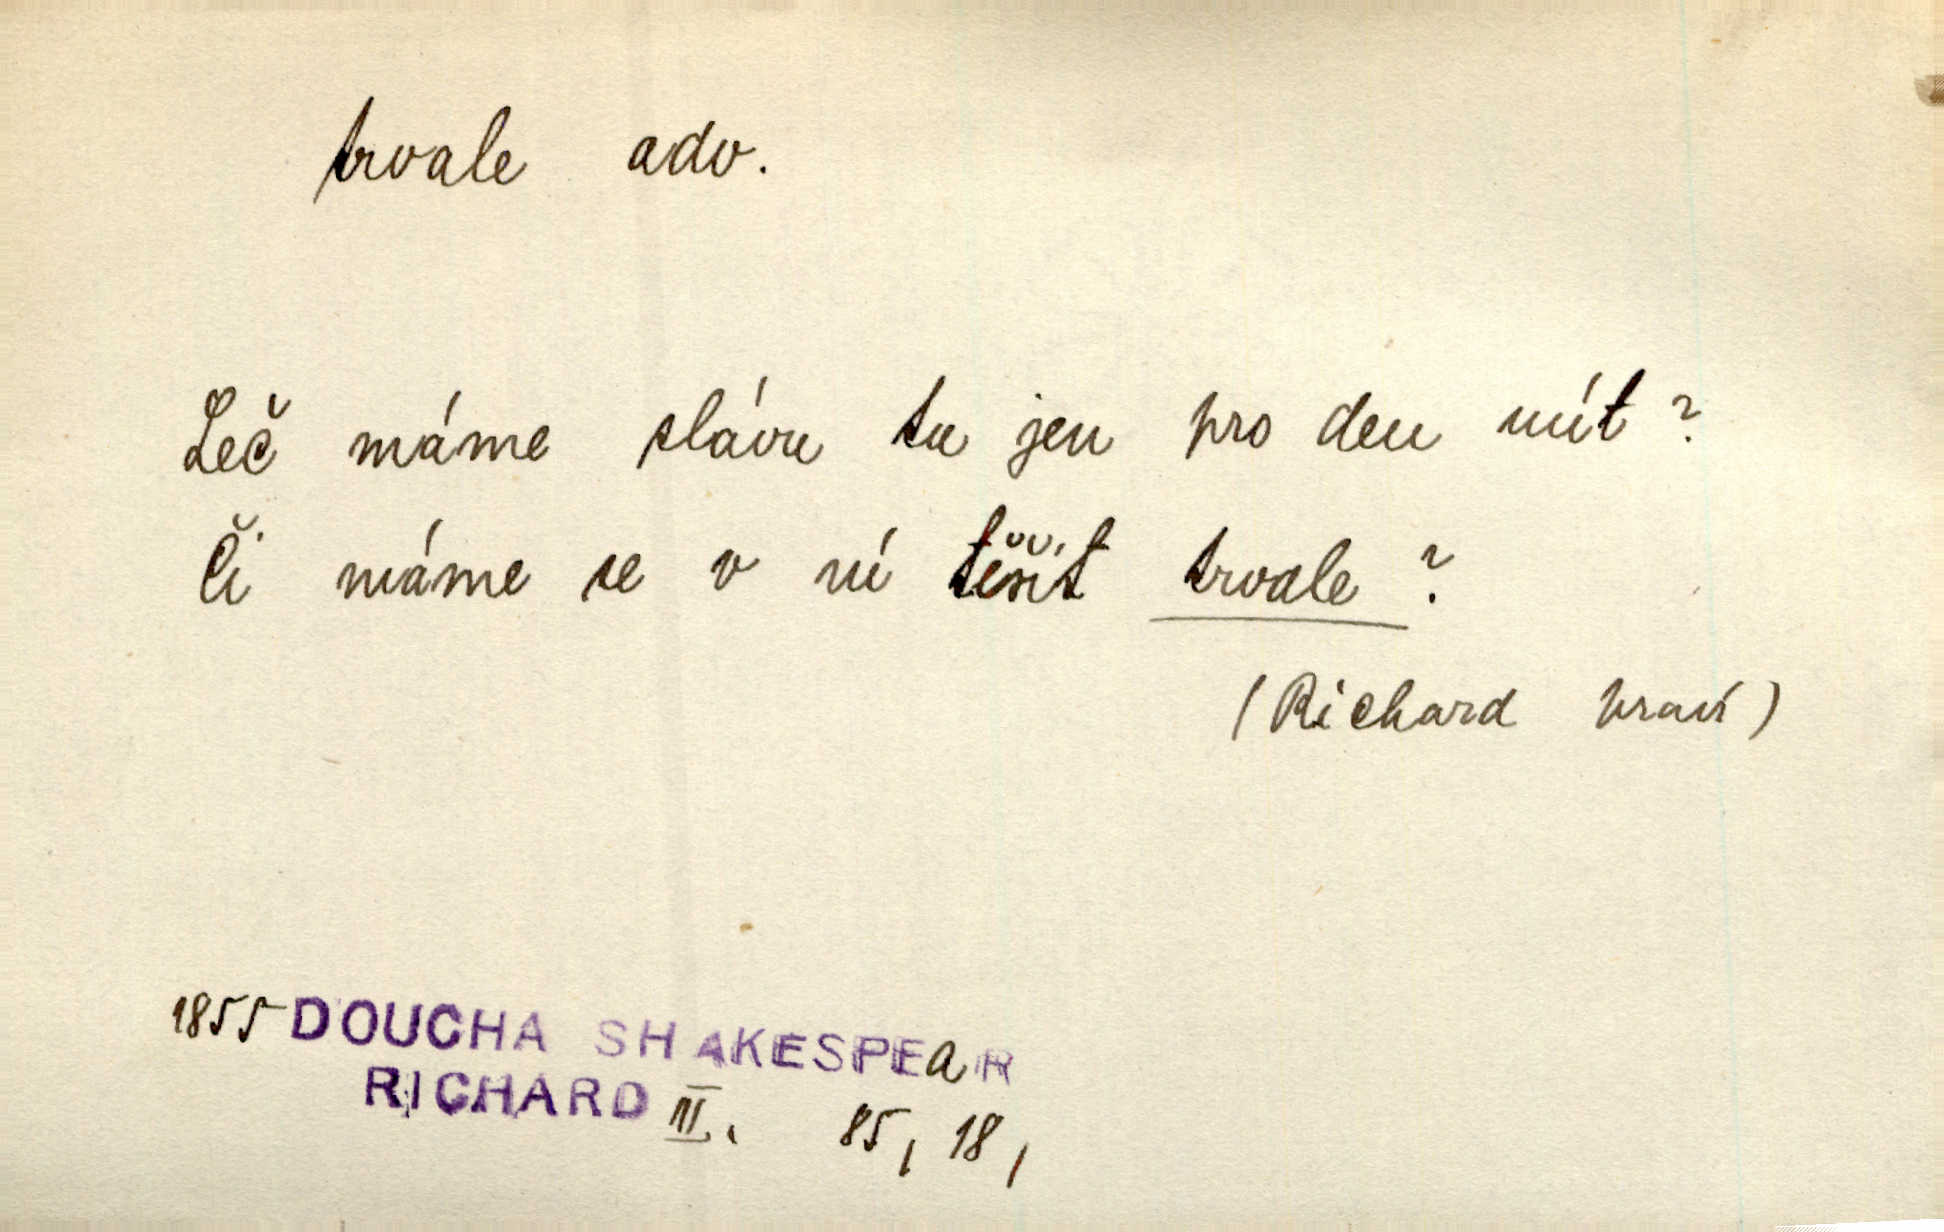 trvale adv.
Leč máme slávu tu jen pro den mít?
Či máme se v ní těšit trvale?
(Richard praví)
1855 DOUCHA SHAKESPEAR
RICHARD III. 85, 18,